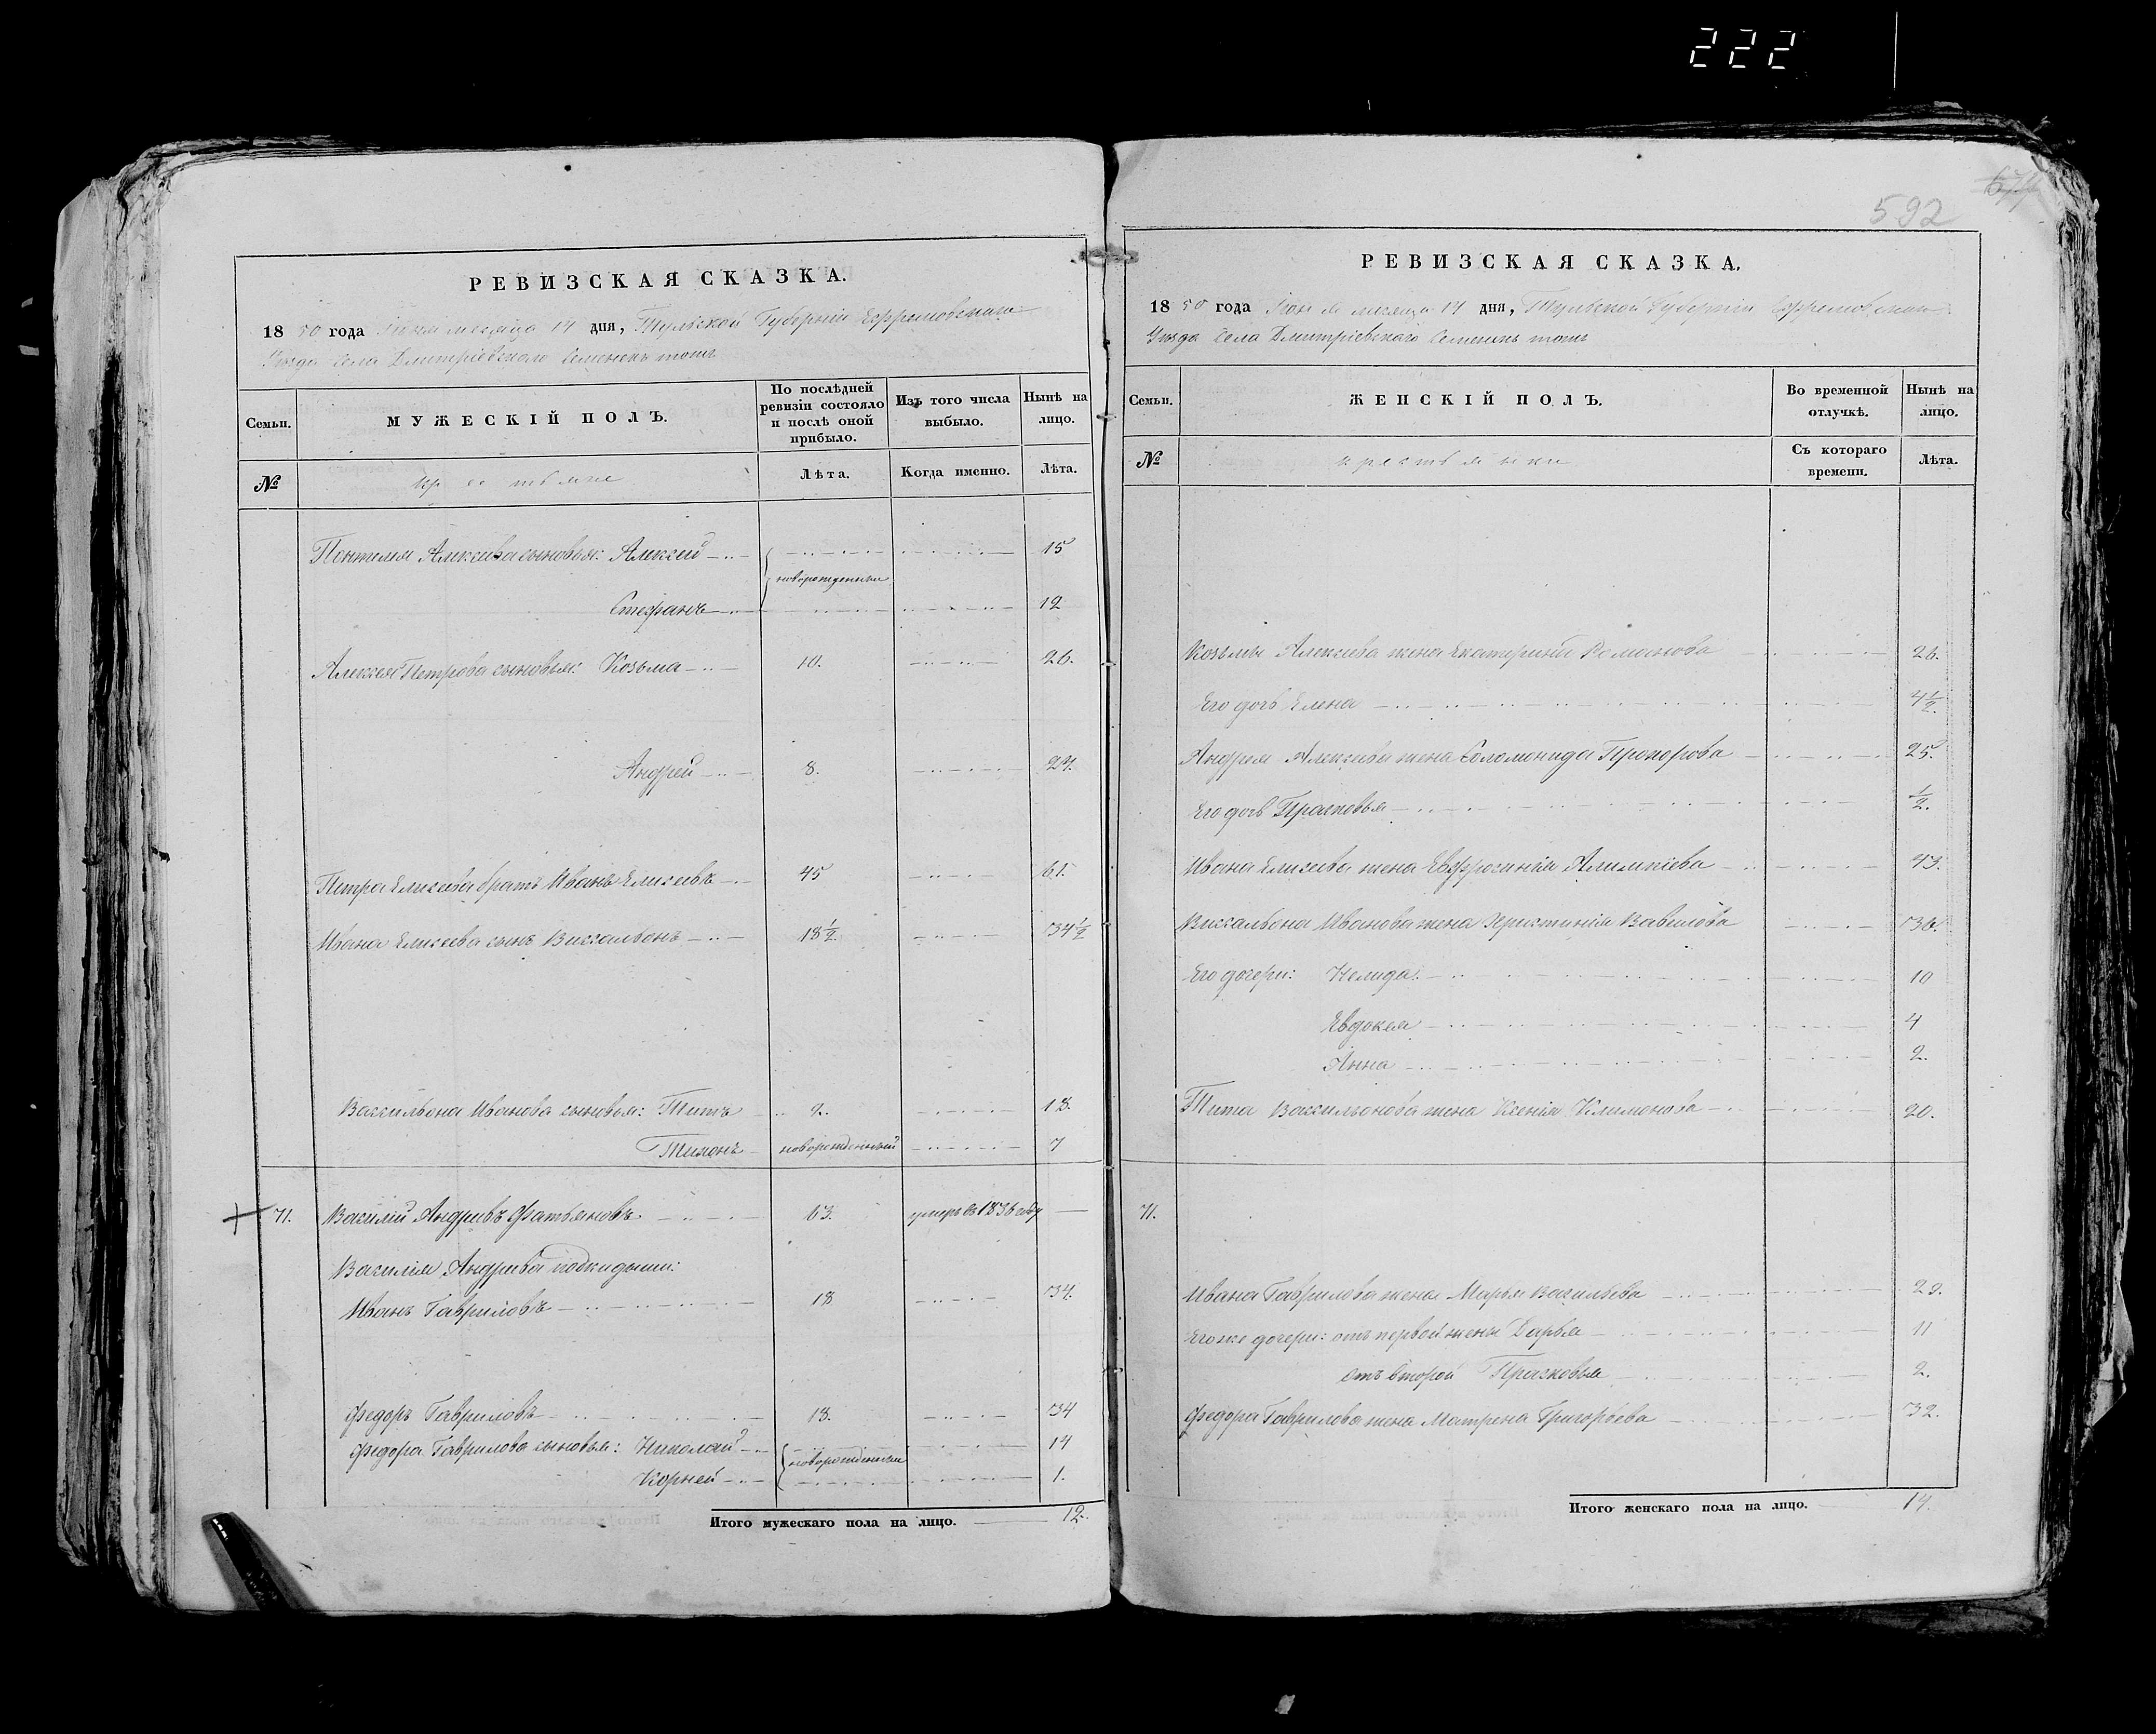 222
592
РЕВИЗСКАЯ СКАЗКА.
1850 года Июня месяца 14 дня, Тульской Губерніи Ефремовскаго
Уѣзда Села Дмитріевскаго Семенекъ тожъ
Семьи.
МУЖЕСКІЙ ПОЛЪ.
По послѣдней ревизіи состояло и послѣ оной прибыло.
Изъ того числа выбыло.
Нынѣ на лицо.
№
крестьяне
Лѣта.
Когда именно.
Лѣта.
Алексеева сыновья: Алексей 15
новорожденные
Стефанъ 12
Алексея Петрова сыновья: Козьма 10. 26.
Андрей 8. 24.
Петра Елисеева братъ Иванъ Елисеевъ 45 61.
Ивана Елисеева сынъ 18½ 34½
Ивана сыновья: Титъ 2. 18.
Тихонъ новорожденный 7
71. Василій Андреевъ Фатьяновъ 63. умеръ въ 1836 году
Василія Андреева подкидыши:
Иванъ Гавриловъ 18 34.
Федоръ Гавриловъ 18. 34
Федора Гаврилова сыновья: Николай 14
новорожденные
Корней 1.
Итого мужескаго пола на лицо. 12.
РЕВИЗСКАЯ СКАЗКА.
1850 года месяца 14 дня, Тульской Губерніи
Уѣзда Села Дмитріевскаго Семенекъ тожъ
Семьи.
ЖЕНСКІЙ ПОЛЪ.
Во временной отлучкѣ.
Нынѣ на лицо.
№
крестьянки
Съ котораго времени.
Лѣта.
Козьмы Алексеева жена Екатерина Романова 26.
Его дочь Елена 4½
Андрея Алексеева жена Соломонида Прохорова 25.
Его дочь Прасковья ½.
Ивана Елисеева жена Евфросинія
Иванова жена Христинія Вавилова 36.
Его дочери: 10
Евдокея 4
Анна 2.
Тита жена Ксенія 20.
71.
Ивана Гаврилова жена Марья Васильева 29.
Его же дочери: отъ первой жены Дарья 11
отъ второй Прасковья 2.
Федора Гаврилова жена Матрена Григорьева 32.
Итого женскаго пола на лицо. 14.